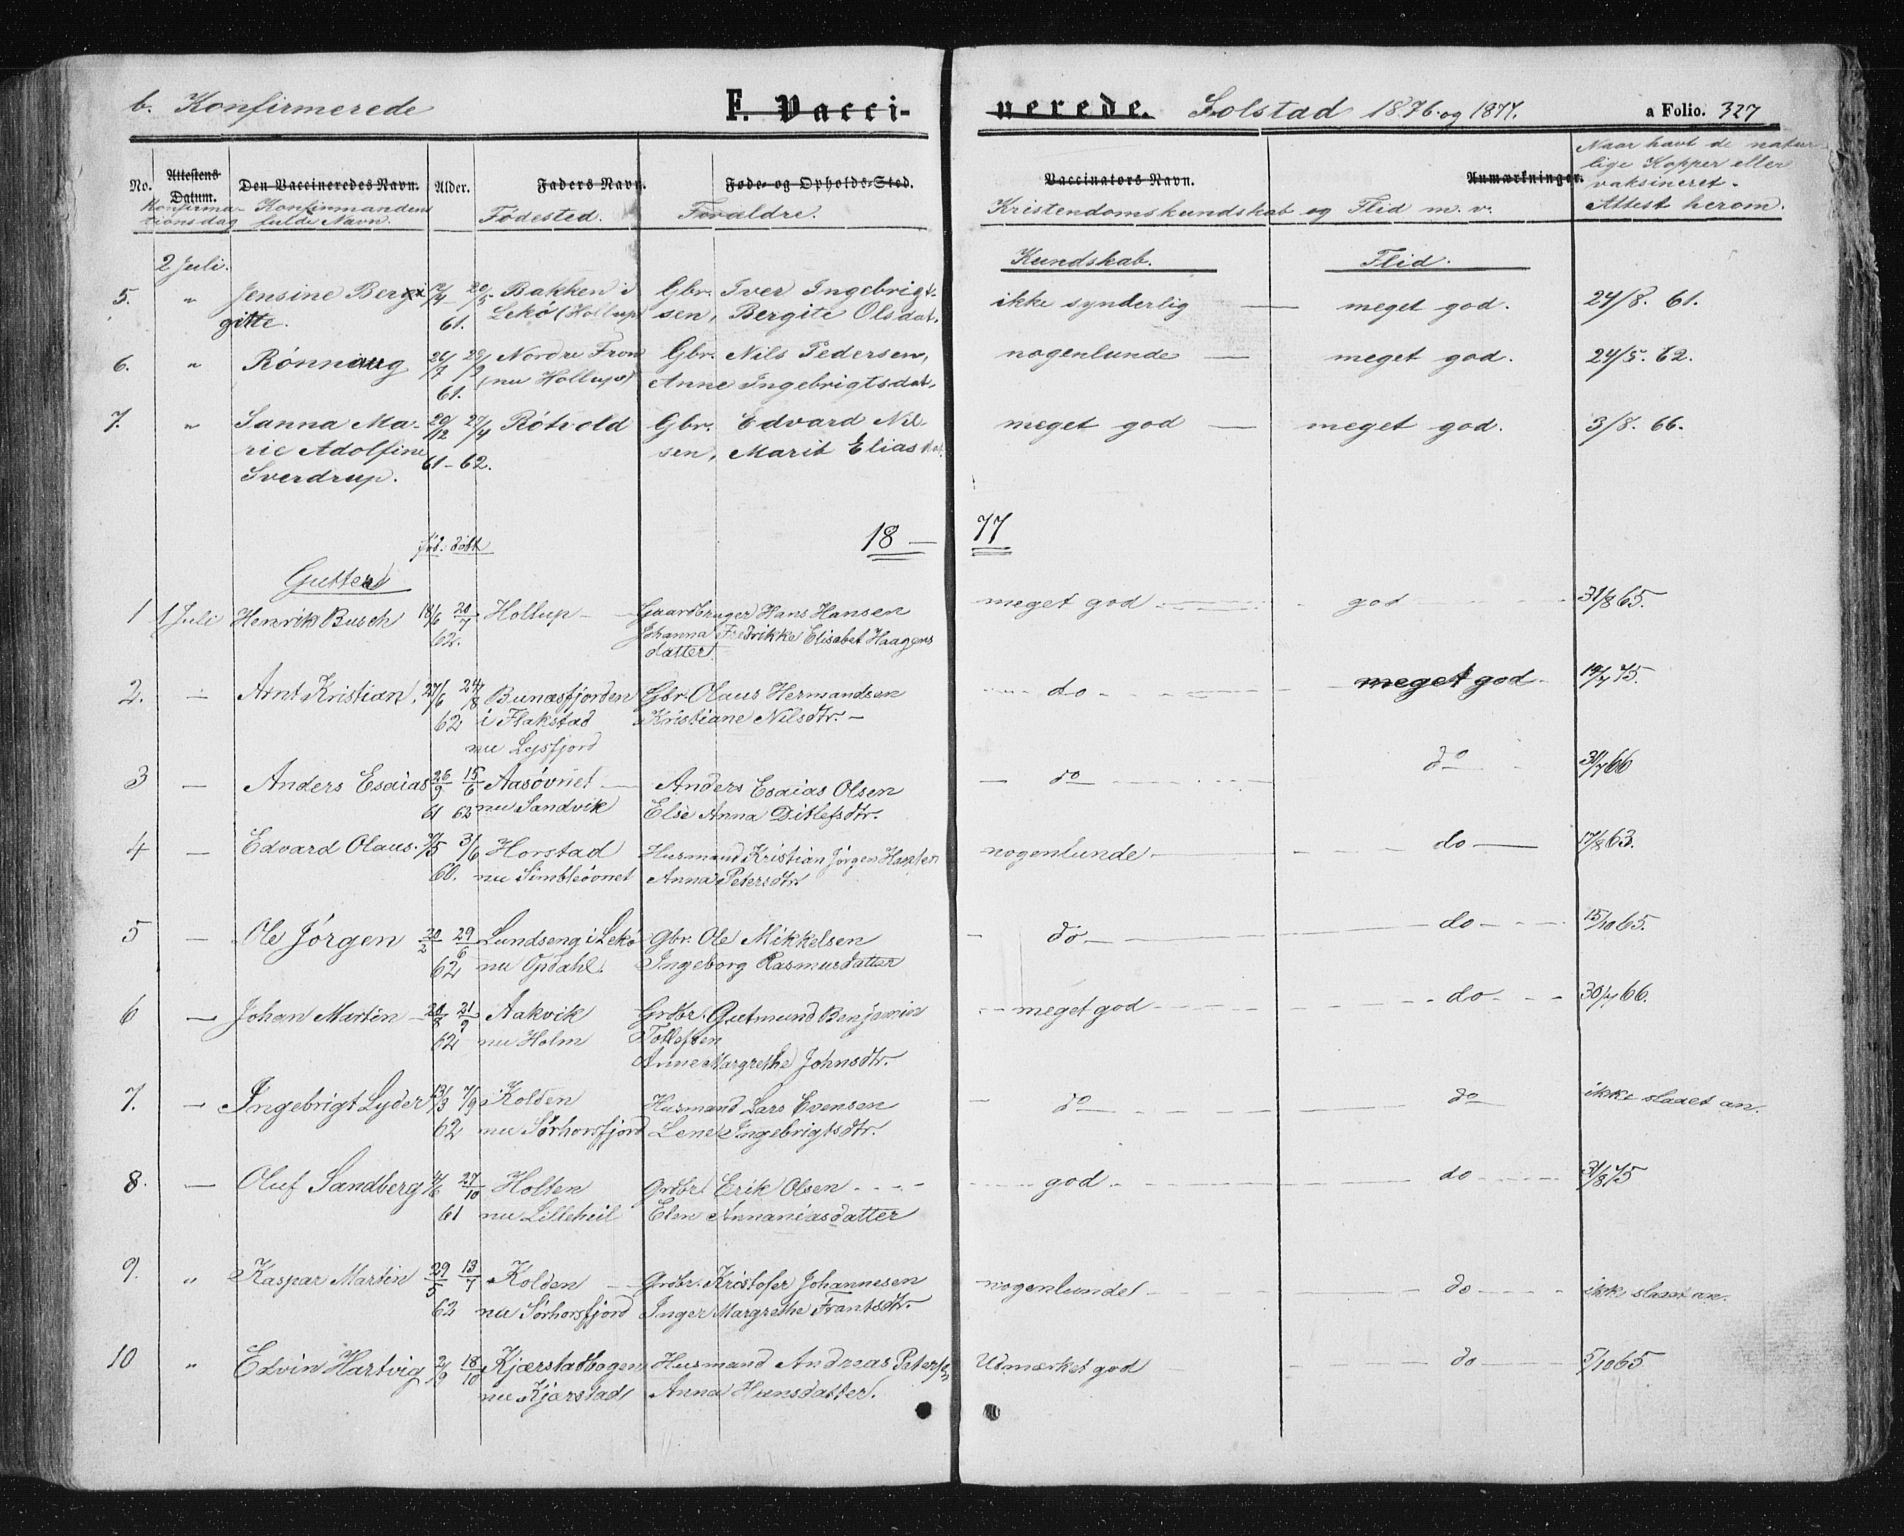 b. Konfirmerede F. Vacci- nerede. Solstad 1876 og 1877. a Folio. 327
No. Attestens Datum. Den Vaccineredes Navn. Alder. Faders Navn. Føde- og Opholds-Sted. Vaccinators Navn. Anmærkninger.
Konfirma-tionsdag Konfirmandens fulde Navn. Fødested. Forældre. Kristendomskundskab og Flid m. v. Naar havt de natur-
lige Kopper eller
vaksineret.
Attest herom.
2 Juli. Kundskab. Flid.
5. " Jensine Ber- 20/5 Bakken i Gbr. Iver Ingebrigt- ikke synderlig — meget god. 24/8. 61.
gitte. 61. Lekø (Hollup) sen, Bergite Olsdat.
6. " Rønnaug 26/7 Nordre Fron Gbr. Nils Pedersen, nogenlunde — meget god. 24/5. 62.
61. (nu Hollup) Anne Ingebrigtsdat.
7. " Sanna Ma- 29/12 27/4 Røtvold Gbr. Edvard Nil- meget god — meget god. 3/8. 66.
rie Adolfine 61-62. sen, Marit Eliasdat.
Sverdrup.
18 — 77
fød. døbt
Gutter
1 1 Juli Henrik Busch 18/6 20/7 Hollup — Gaardbruger Hans Hansen meget god god 31/8 65.
62. Johanna Fredrikke Elisabet Haagens
datter.
2. — Arnt Kristian. 27/6 24/8 Bunæsfjorden Gbr. Olaus Hermandsen do meget god 19/7 75.
62 i Flakstad Kristiane Nilsdtr. —
nu Lysfjord
3 — Anders Esaias 26/9 15/6 Aasøvnet — Anders Esaias Olsen — do do 31/7 66
61 62 nu Sandvik Else Anna Ditlefsdtr.
4 — Edvard Olaus. 3/6 Horstad Husmand Kristian Jørgen Hansen nogenlunde do — 17/8 63.
60. nu Simbleøvnet Anna Petersdtr
5 — Ole Jørgen 20/2 29/6 Lundseng i Lekø Gbr. Ole Mikkelsen do do 15/10 65.
62 nu Opdahl. Ingeborg Rasmusdatter
6 — Johan Martin 21/9 Aakvik Grdbr. Gutmund Benjamin meget god do 30/7 66.
62 nu Holm Tollefsen
Anne Margrethe Johnsdtr.
7. — Ingebrigt Lyder 13/3 7/9 Kolden Husmand Lars Evensen — do do ikke slaaet an.
62 nu Sørhorsfjord Lene Ingebrigtsdtr.
8. — Oluf Sandberg 27/10 Holten Grdbr. Erik Olsen god do 31/8 75
61 nu Lilleheil Elen Annaniasdatter
9. " Kaspar Martin 29/5 13/7 Kolden Grdbr. Kristofer Johannesen nogenlunde do ikke slaaet an.
62 nu Sørhorsfjord Inger Margrethe Frantsdtr.
10 " Edvin Hartvig 2/9 18/10 Kjærstadbogen Husmand Andreas Petersen Udmærket god do 5/10 65
nu Kjærstad Anna Hansdatter.